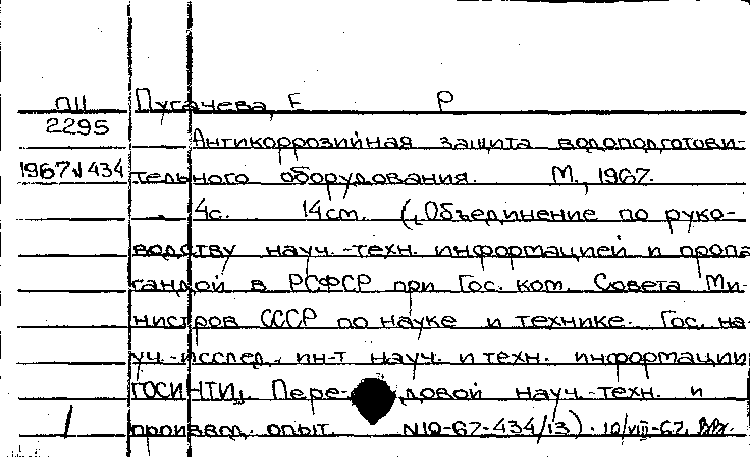 ПЦ Пугачева, Е Р
2295 Антикоррозийная защита водоподготови-
1967 434 тельного оборудования. М., 1967.
4с. 14см. („Объединение по руко-
водству науч.-техн. информацией и пропа
гандой в РСФСР при Гос. ком. Совета Ми-
нистров СССР по науке и технике. Гос. на-
уч.-исслед. ин-т науч. и техн. информации
ГОСИНТИ„. Пере- довой науч.-техн. и
производ. опыт. N10-67-434/13). 10/VIII-67.